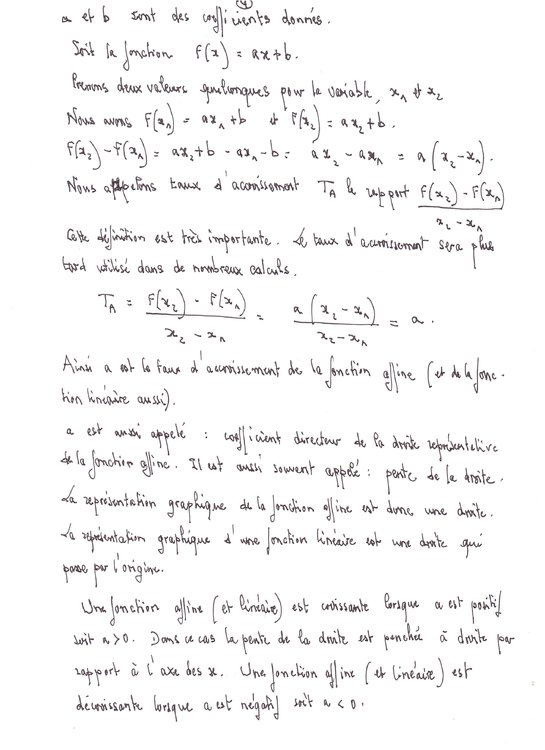 4
a et b sont des coefficients donnés.
Soit la fonction f(x) = ax+b.
Prenons deux valeurs quelconques pour la variable, x₁ et x₂
Nous avons f(x₁) = ax₁+b et f(x₂) = ax₂+b.
f(x₂)-f(x₁) = ax₂+b - ax₁-b = ax₂-ax₁ = a(x₂-x₁).
Nous appelons taux d'accroissement T_A le rapport f(x₂) - f(x₁)
x₂ - x₁
Cette définition est très importante. Le taux d'accroissement sera plus
tard utilisé dans de nombreux calculs.
T_A = f(x₂) - f(x₁) = a(x₂ - x₁) = a.
x₂ - x₁ x₂ - x₁
Ainsi a est le taux d'accroissement de la fonction affine (et de la fonc-
tion linéaire aussi).
a est aussi appelé : coefficient directeur de la droite représentative
de la fonction affine. Il est aussi souvent appelé : pente de la droite.
La représentation graphique de la fonction affine est donc une droite.
La représentation graphique d'une fonction linéaire est une droite qui
passe par l'origine.
Une fonction affine (et linéaire) est croissante lorsque a est positif
soit a > 0. Dans ce cas la pente de la droite est penchée à droite par
rapport à l'axe des x. Une fonction affine (et linéaire) est
décroissante lorsque a est négatif soit a < 0.